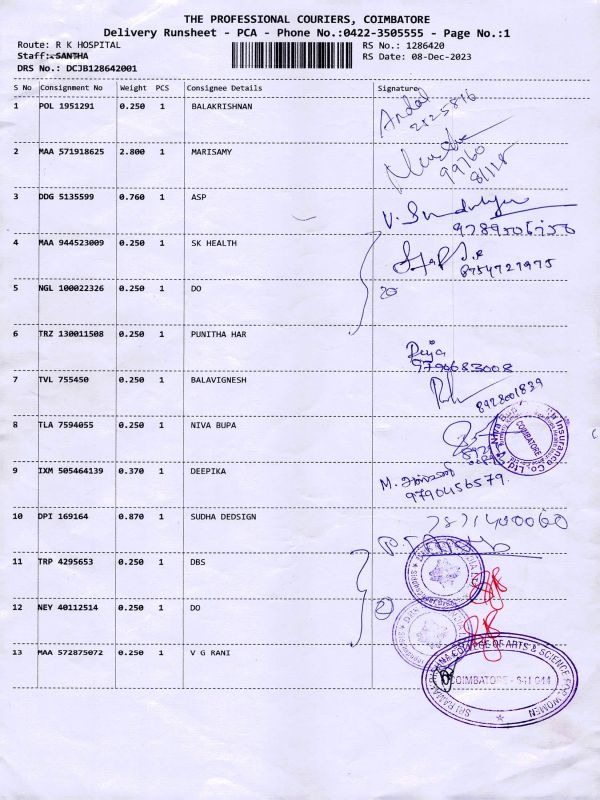 THE PROFESSIONAL COURIERS, COIMBATORE
Delivery Runsheet - PCA - Phone No.:0422-3505555 - Page No.:1
Route: R K HOSPITAL
RS No.: 1286420
Staff:-SANTHA
RS Date: 08-Dec-2023
DRS No.: DCJB128642001
S No Consignment No Weight PCS Consignee Details Signature
1 POL 1951291 0.250 1 BALAKRISHNAN
2 MAA 571918625 2.800 1 MARISAMY
3 DDG 5135599 0.760 1 ASP
4 MAA 944523009 0.250 1 SK HEALTH
8754727975
5 NGL 100022326 0.250 1 DO
6 TRZ 130011508 0.250 1 PUNITHA HAR
9790683008
7 TVL 755450 0.250 1 BALAVIGNESH
8928001839
8 TLA 7594055 0.250 1 NIVA BUPA
COIMBATORE
9 IXM 505464139 0.370 1 DEEPIKA
9790456579.
10 DPI 169164 0.870 1 SUDHA DEDSIGN
11 TRP 4295653 0.250 1 DBS
12 NEY 40112514 0.250 1 DO
2
13 MAA 572875072 0.250 1 V G RANI
SRI RAMAKRISHNA COLLEGE OF ARTS & SCIENCE FOR WOMEN
COIMBATORE - 641 044